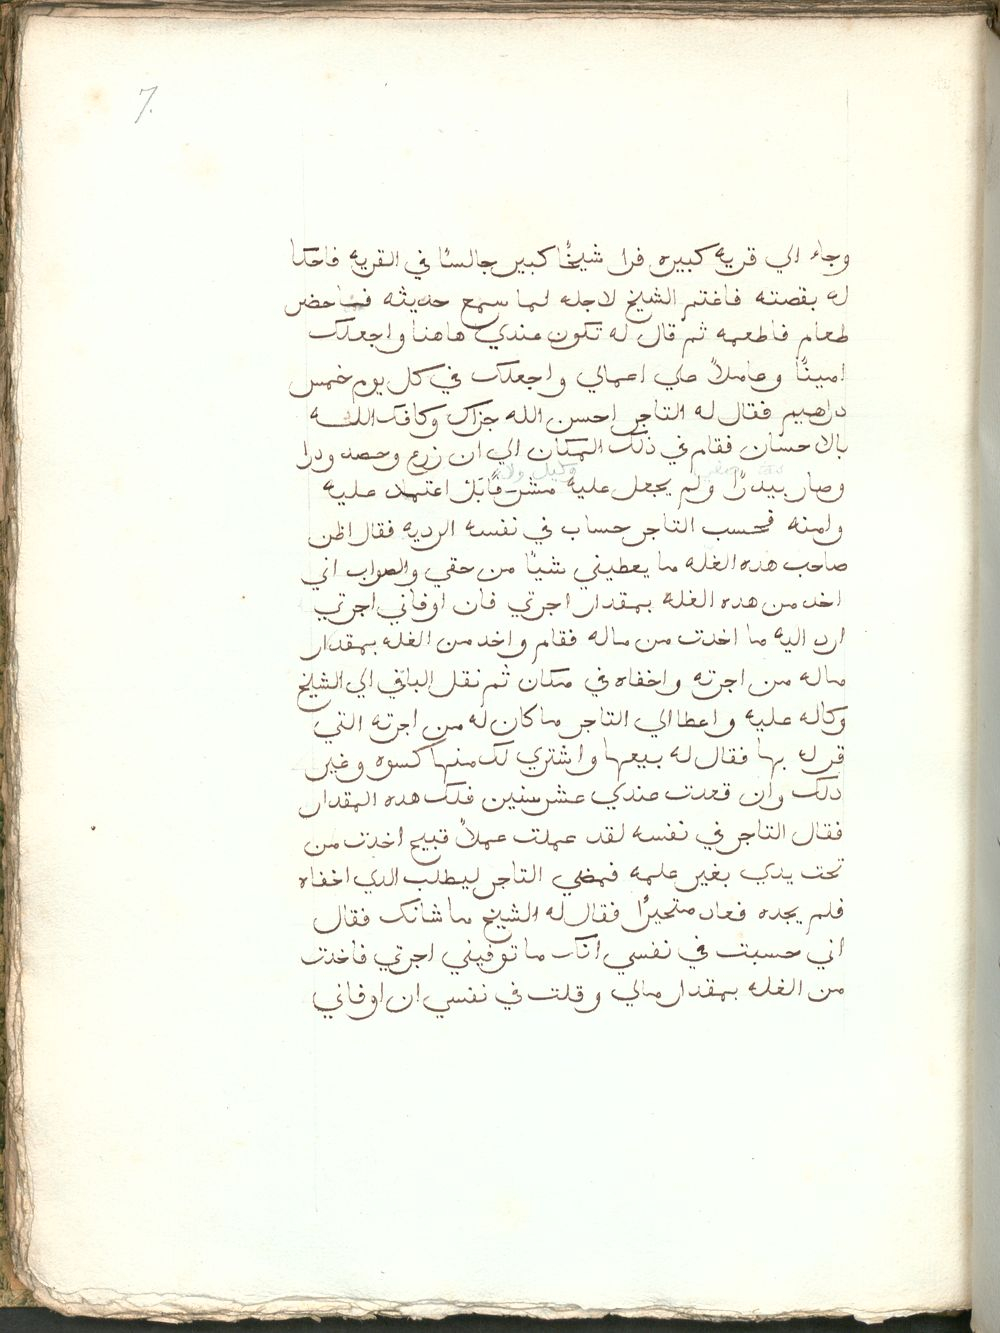 7.
وجاء الي قريه كبيره فرا شيخًا كبير جالسًا في القريه فاحكا
له بقصته فاغتم الشيخ لاجله لما سمع حديثه فاحضر
طعام فاطعمه ثم قال له تكون عندي هاهنا واجعلك
امينًا وعاملاً علي اعمالي واجعلك في كل يوم خمس
دراهيم فقال له التاجر احسن الله جزاك وكافك الله
بالاحسان فقام في ذلك المكان الي ان زرع وحصد ودرا
وكيل ولا
وصار بيدرًا ولم يجعل عليه مشرفًا بل اعتمد عليه
وامنه فحسب التاجر حساب في نفسه الرديه فقال اظن
صاحب هده الغله ما يعطيني شيًا من حقي والصواب اني
اخد من هده الغله بمقدار اجرتي فان اوفاني اجرتي
ارد اليه ما اخدت من ماله فقام واخد من الغله بمقدار
ماله من اجرته واخفاه في مكان ثم نقل الباقي الي الشيخ
وكاله عليه واعطا الي التاجر ما كان له من اجرته التي
قر له بها فقال له بيعها واشتري لك منها كسوه وغير
دلك وان قعدت عندي عشر سنين فلك هده المقدار
فقال التاجر في نفسه لقد عملت عملاً قبيح اخدت من
تحت يدي بغير علمه فمضي التاجر ليطلب الدي اخفاه
فلم يجده فعاد متحيرًا فقال له الشيخ ما شانك فقال
اني حسبت في نفسي انك ما توفيني اجرتي فاخذت
من الغله بمقدار مالي وقلت في نفسي ان اوفاني